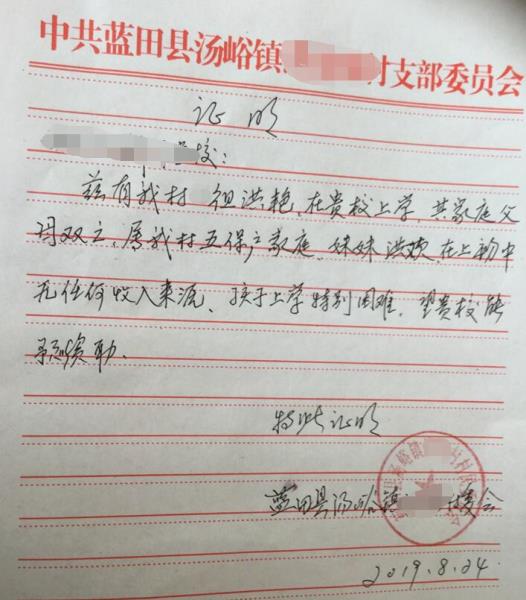 中共蓝田县汤峪镇 村支部委员会
证明
校：
兹有我村 组洪艳，在贵校上学，其家庭父
母双亡，属我村五保户家庭。妹妹洪 在上初中
无任何收入来源、孩子上学特别困难，望贵校能
予 资助．
特此证明
蓝田县汤峪镇 委会
2019.8.24